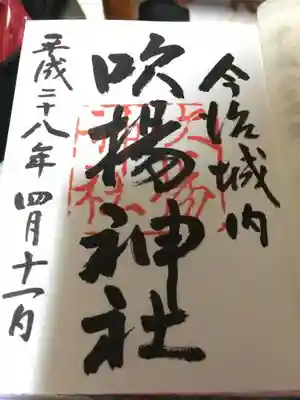 今治城内
吹揚神社
平成二十八年四月十一日
吹揚
神社